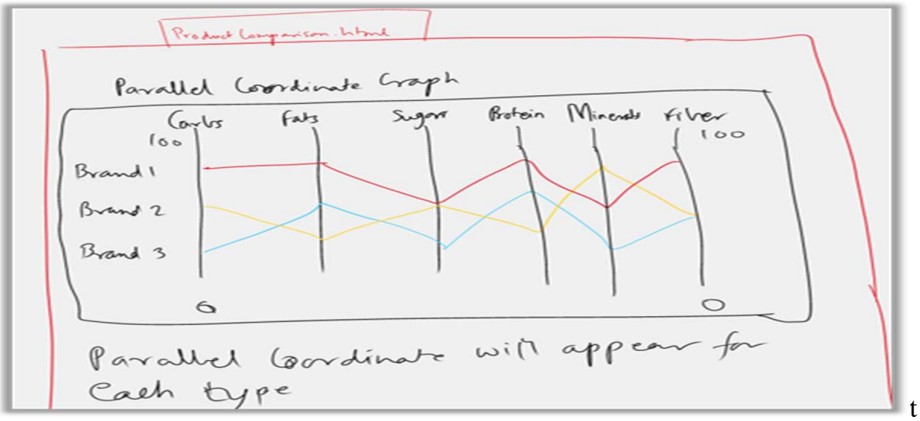 Product Comparison.html
Parallel Coordinate Graph
Carbs Fats Sugars Protein Minerals Fiber
100 100
Brand 1
Brand 2
Brand 3
0 0
Parallel Coordinate will appear for
Each type
t